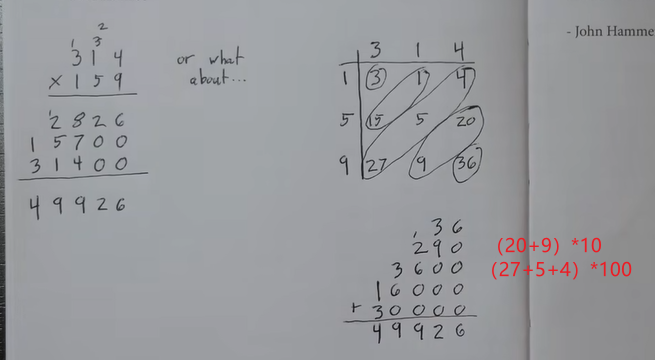 - John Hamme
2
1 3
3 1 4
× 1 5 9
1
2 8 2 6
1 5 7 0 0
3 1 4 0 0
4 9 9 2 6
or what
about...
3 1 4
1 3 1 4
5 15 5 20
9 27 9 36
3 6
1
2 9 0
3 6 0 0
1 6 0 0 0
+ 3 0 0 0 0
4 9 9 2 6
(20+9) *10
(27+5+4) *100